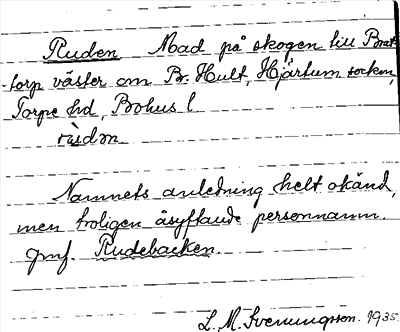 Ruden Mad på skogen till Brat-
torp väster om Br. Hult, Hjärtum socken,
Torpe hd, Bohus l
rùdən
Namnets anledning helt okänd,
men troligen åsyftande personnamn.
Jmf. Rudebacken.
L. M. Svenungsson. 1935.